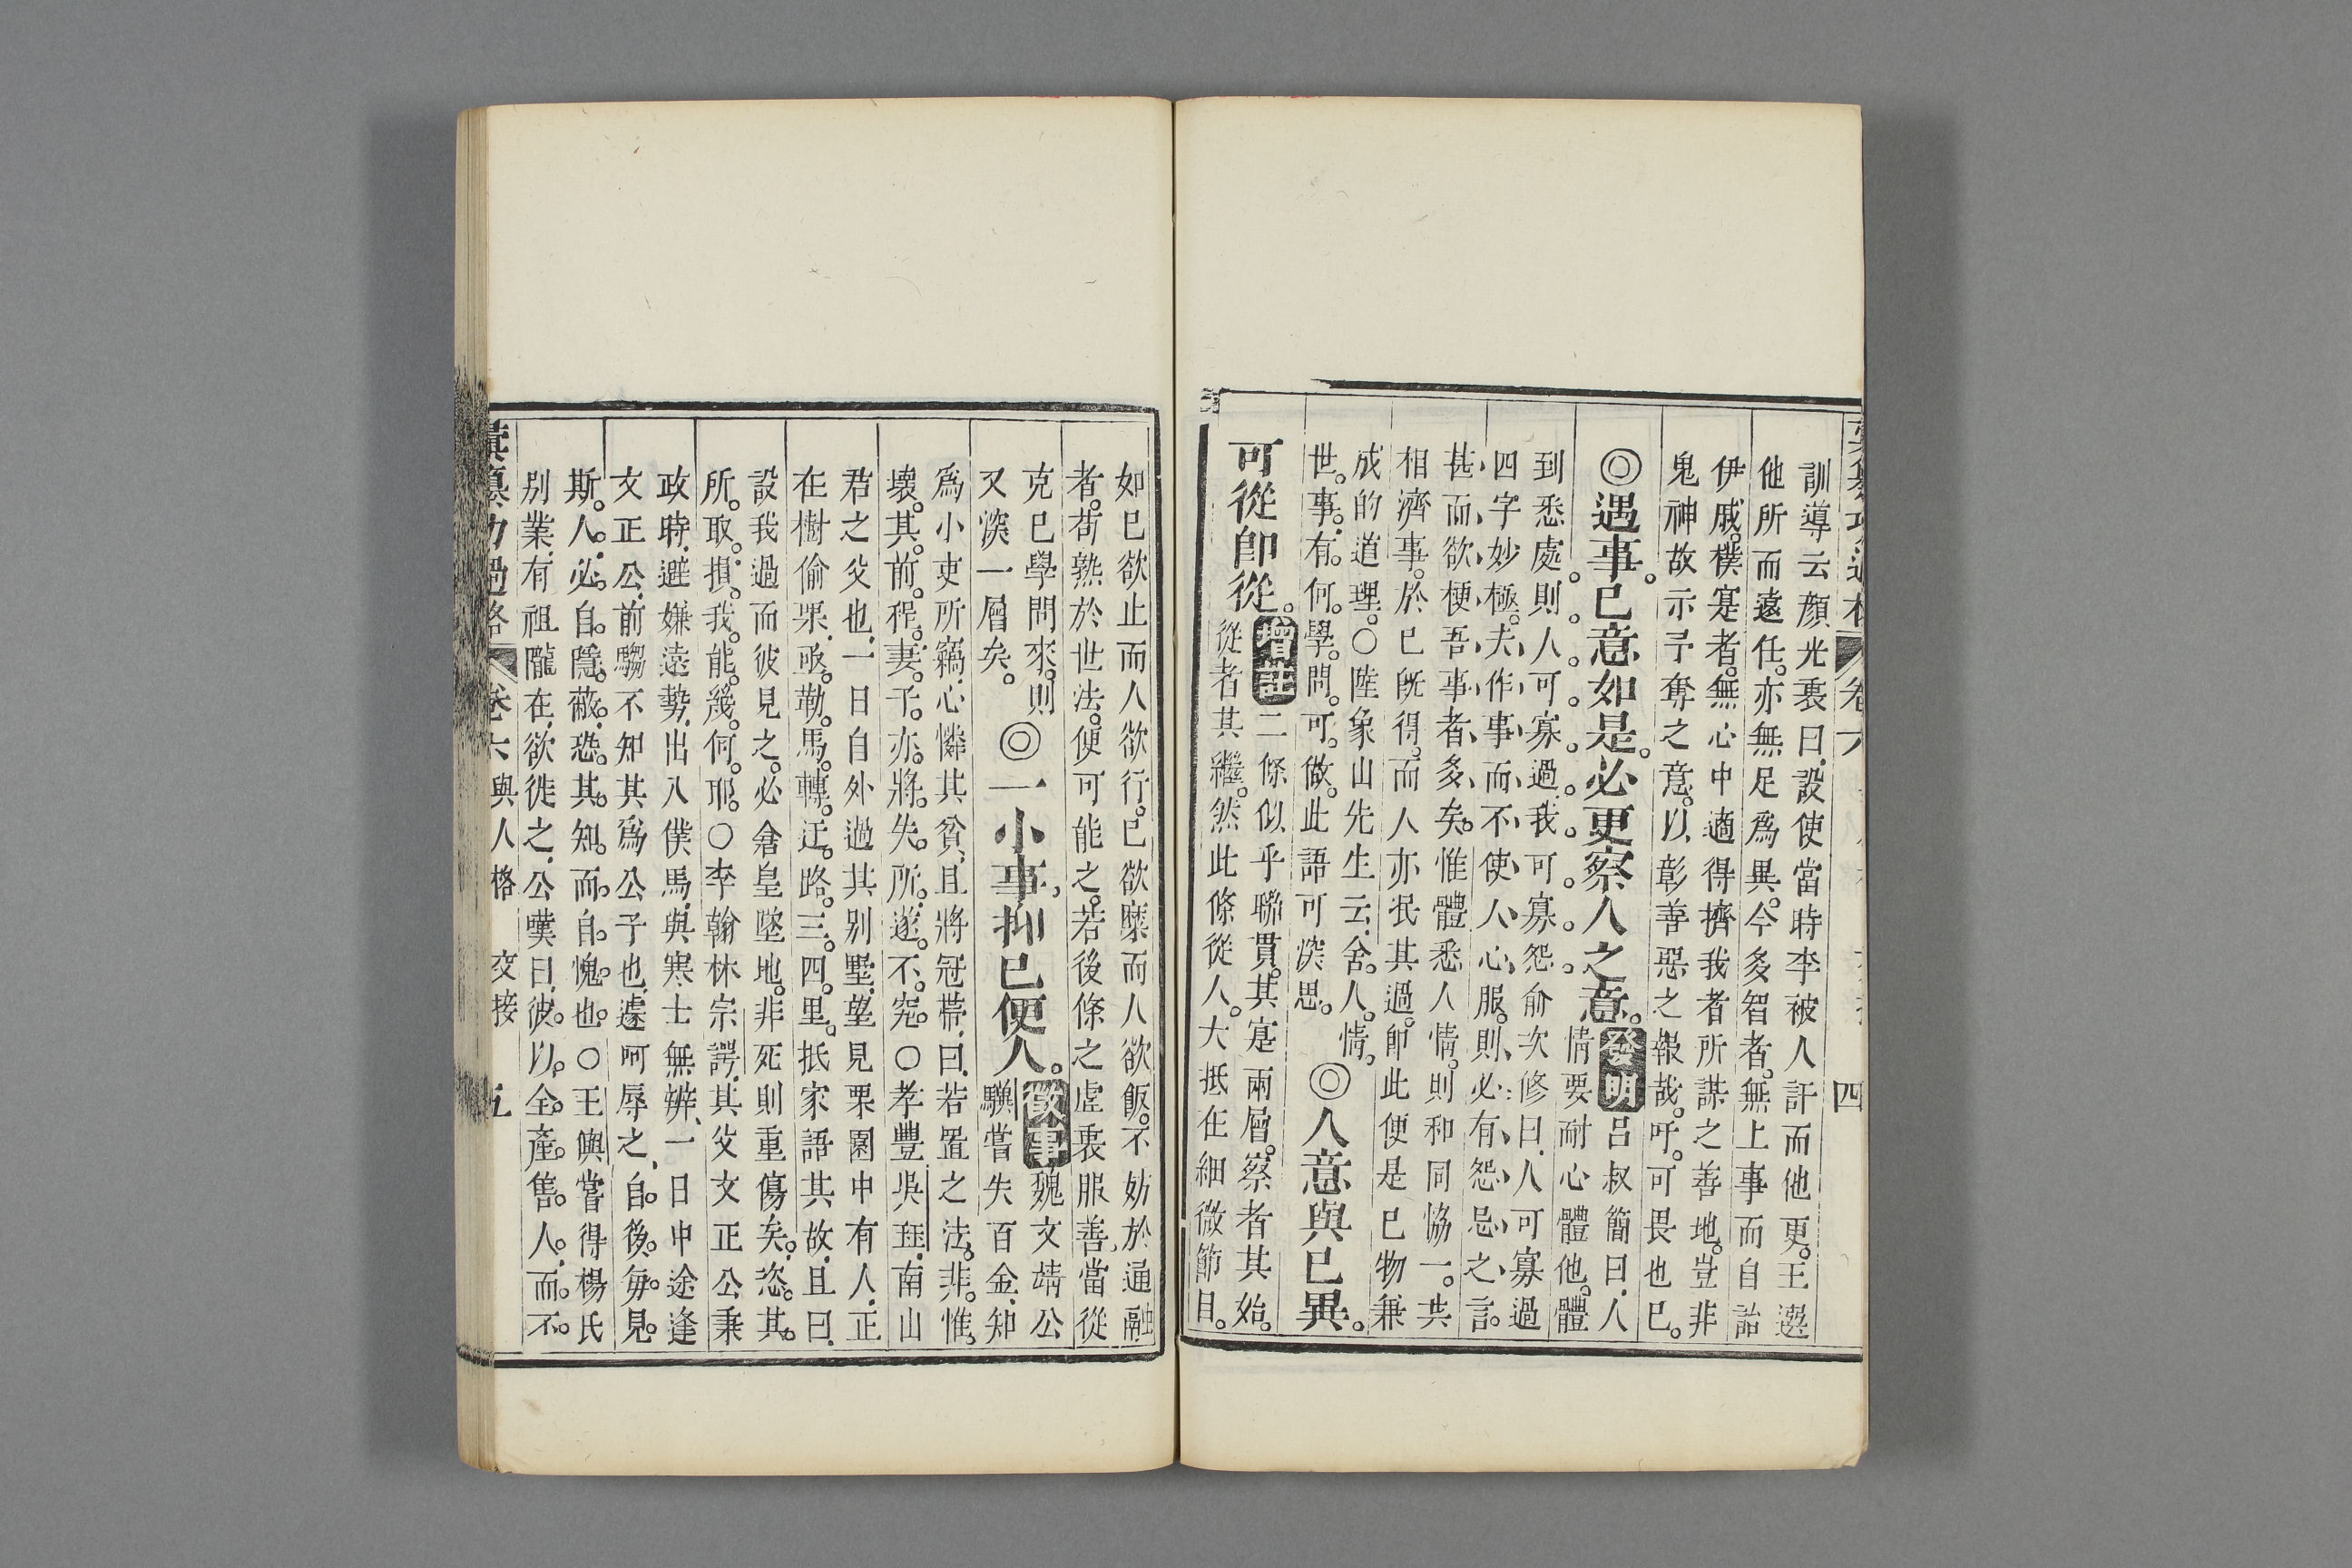 彙纂功過格 卷六 四
訓導云顏光衷曰設使當時李被人訐而他更王選
他所而遠任亦無足爲異今多智者無上事而自詒
伊戚樸寔者無心中適得擠我者所謀之善地豈非
鬼神故示予奪之意以彰善惡之報哉吁可畏也已
◎遇事己意如是必更察人之意發明呂叔簡曰人
情要耐心體他體
到悉處則人可寡過我可寡怨俞次修曰人可寡過
四字妙極夫作事而不使人心服則必有怨忌之言
甚而欲梗吾事者多矣惟體悉人情則和同協一共
相濟事於己旣得而人亦泯其過卽此便是己物兼
成的道理○陸象山先生云舍人情
世事有何學問可做此語可深思◎人意與己異
可從卽從增註二條似乎聯貫其寔兩層察者其始
從者其繼然此條從人大抵在細微節目
如己欲止而人欲行己欲糜而人欲飯不妨於通融
者苟熟於世法便可能之若後條之虛衷服善當從
克己學問來則
又深一層矣◎一小事抑己便人徵事魏文靖公
驥嘗失百金知
爲小吏所竊心憐其貧且將冠帶曰若置之法非惟
壞其前程妻子亦將失所遂不究○孝豐吳珵南山
君之父也一日自外過其别墅望見栗園中有人正
在樹偷栗亟勒馬轉迂路三四里抵家語其故且曰
設我過而彼見之必倉皇墜地非死則重傷矣恣其
所取損我能幾何耶○李翰林宗諤其父文正公秉
政時避嫌遠勢出入僕馬與寒士無辨一日中途逢
文正公前騶不知其爲公子也遽呵辱之自後每見
斯人必自隱蔽恐其知而自愧也○王㒜嘗得楊氏
别業有祖隴在欲徙之公嘆曰彼以全產售人而不
彙纂功過格 卷六 與人格 交接 五